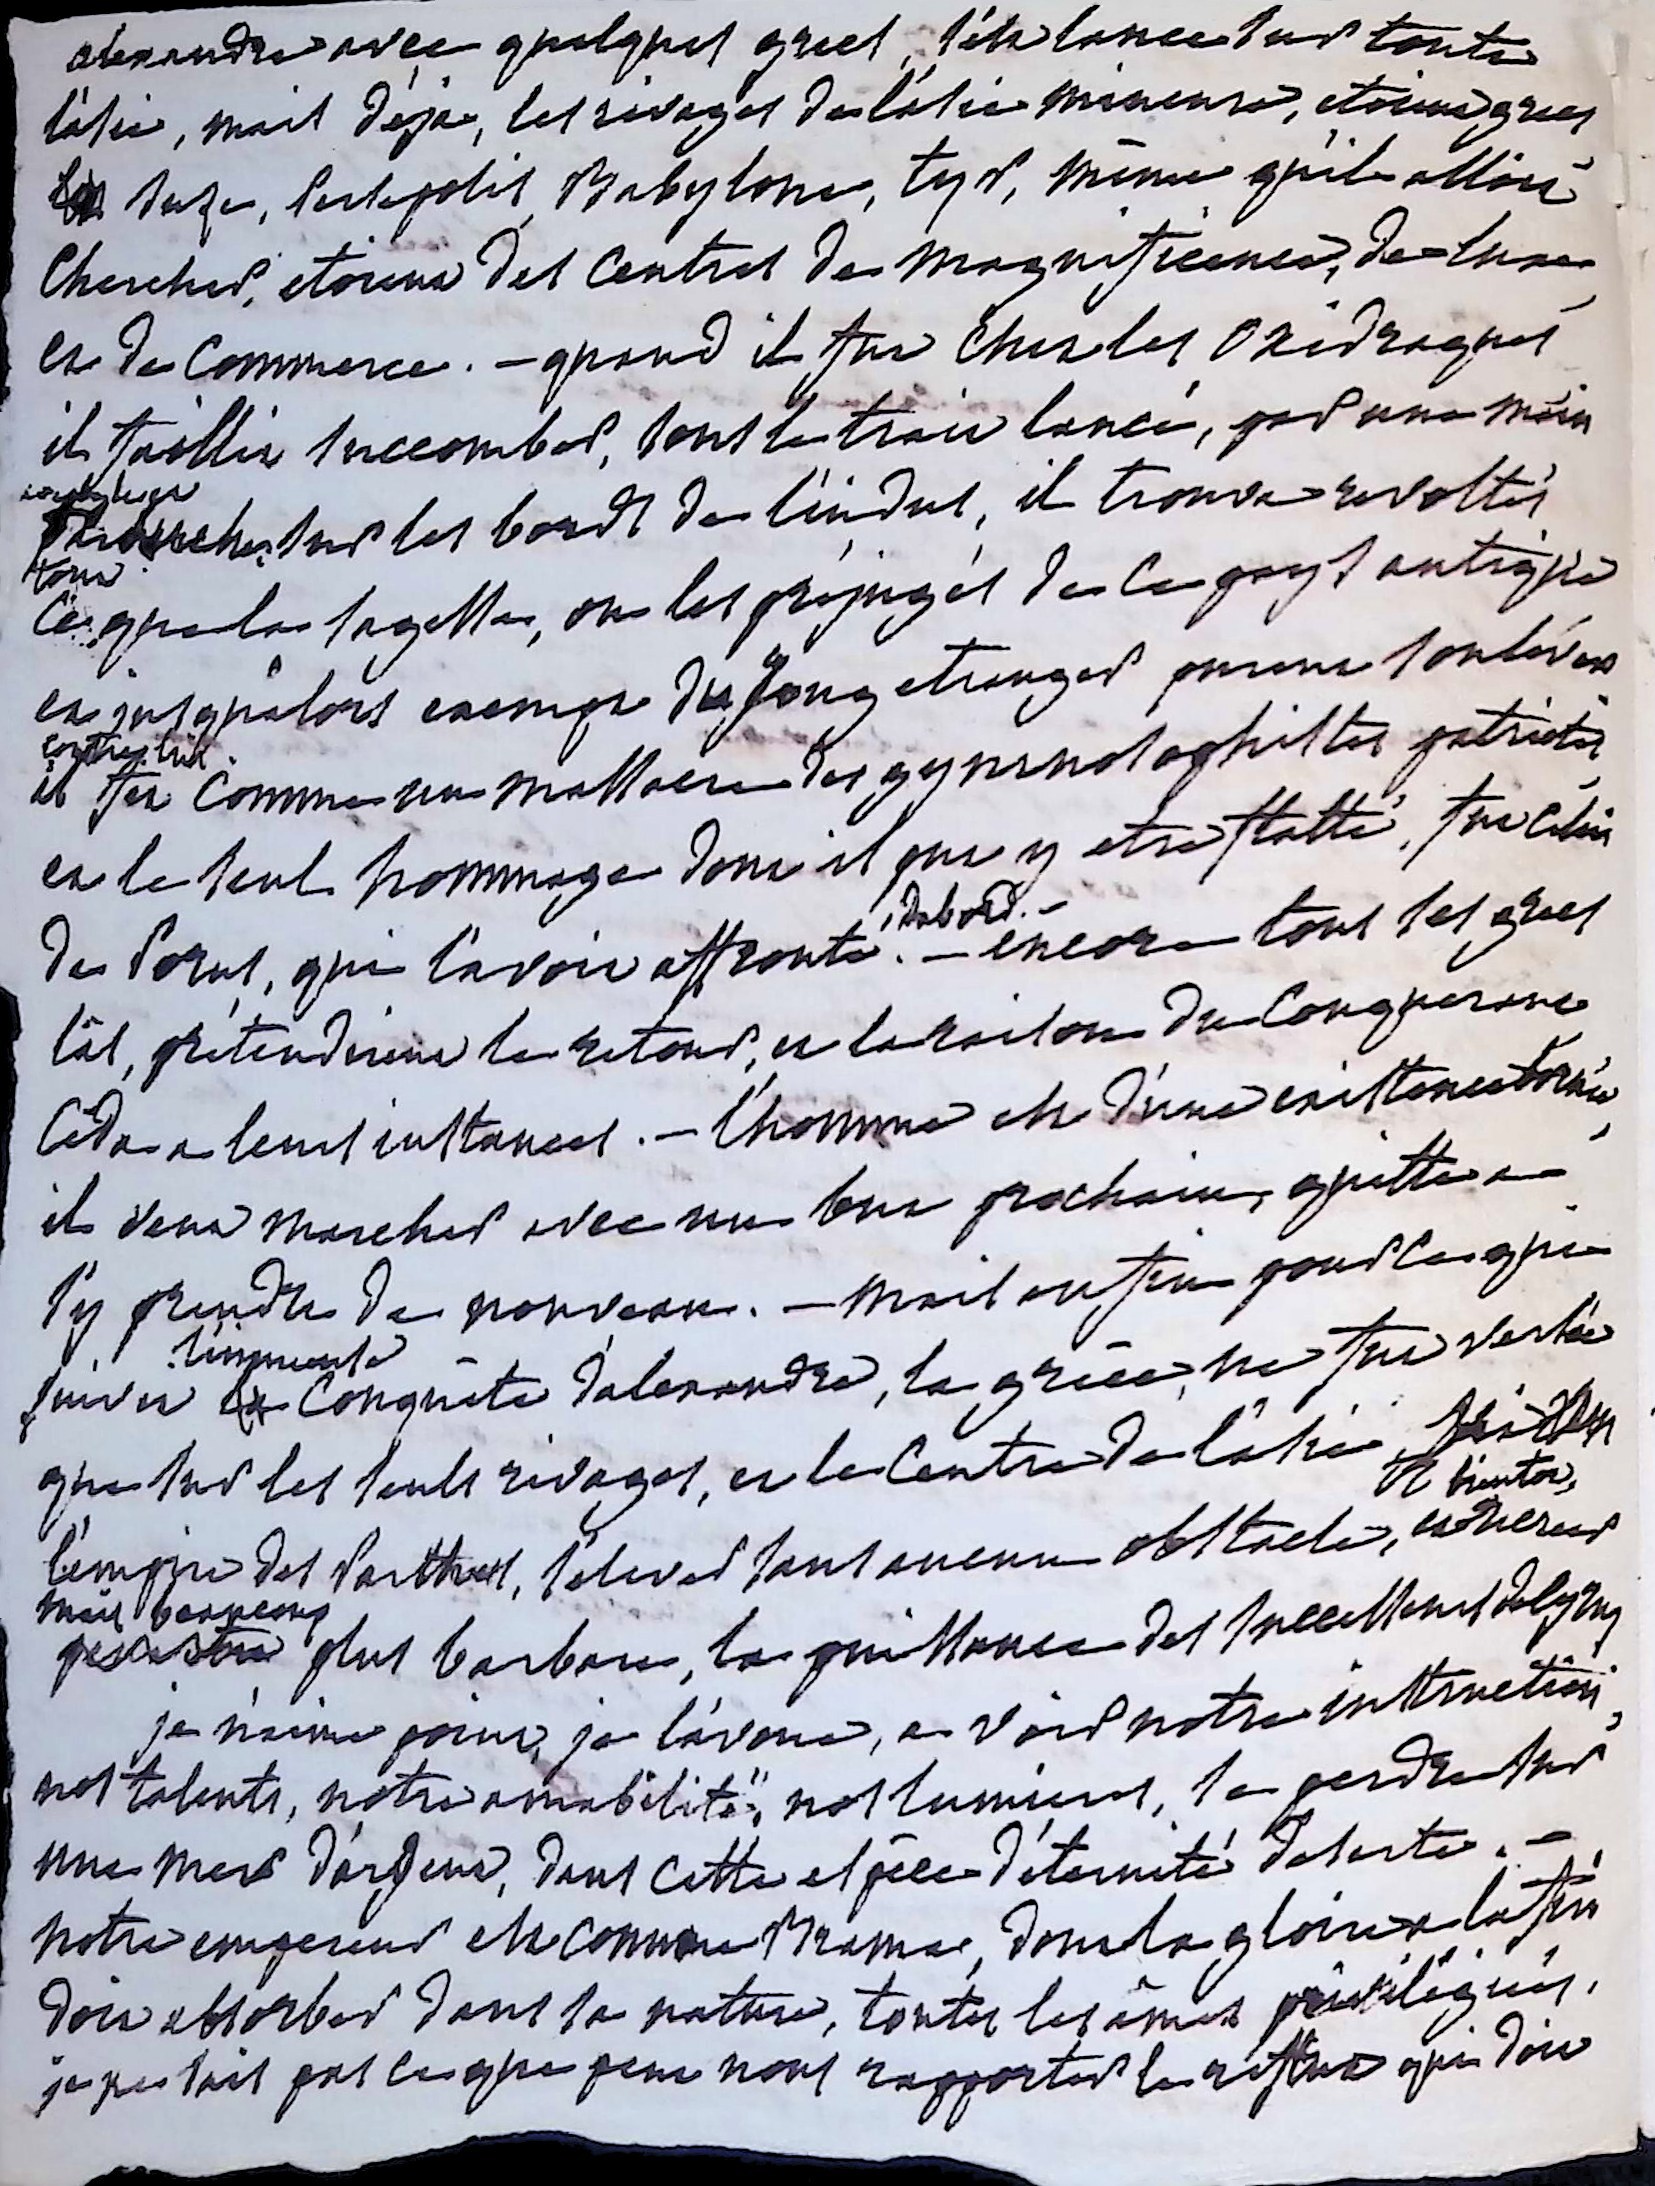 alexandre avec quelques grecs, s'est lancé sur toute
l'asie, mais déja, les rivages de l'asie mineure, etoient grecs
suze, Persepolis, Babylone, tyr, même qu'il alloit
chercher, etoient des centres de magnificence, de luxe
et de commerce. — quand il fut chez les Oxidraques
il faillit succomber, sous le trait lancé, par une main
sur les bords de l'indus, il trouva revoltés
tout
ce que la sagesse, ou les préjugés de ce pays antique
et jusqu'alors exempt du joug etranger purent soulever
contre lui.
il fit comme un massacre des gymnosophistes patriotes,
et le seul hommage dont il put y etre flatté, fut celui
de Porus, qui l'avoit affronté d'abord. — encore tous ses grecs
las, prétendirent le retour, et la raison du conquerant
céda a leurs instances. — l'homme est d'une existence bornée,
il veut marcher avec un but prochain, quitte a
s'y prendre de nouveau. — mais enfin pour ce qui
suivit l'immense conquête d'alexandre, la grèce, ne fut versée
que sur les seuls rivages, et le centre de l'asie, vit bientôt,
l'empire des Parthes, s'elever sans aucun obstacle, et
mais beaucoup
plus barbare, la puissance des successeurs de Cyrus
je n'aime point, je l'avoue, a voir notre instruction,
nos talents, notre amabilité, nos lumieres, se perdre sur
une mer d'argent, dans cette espèce d'éternité deserte. —
notre empereur est comme Brama, dont la gloire a la fin
doit absorber dans sa nature, toutes les âmes privilégiées,
je ne sais pas ce que peut nous rapporter le reflux qui doit